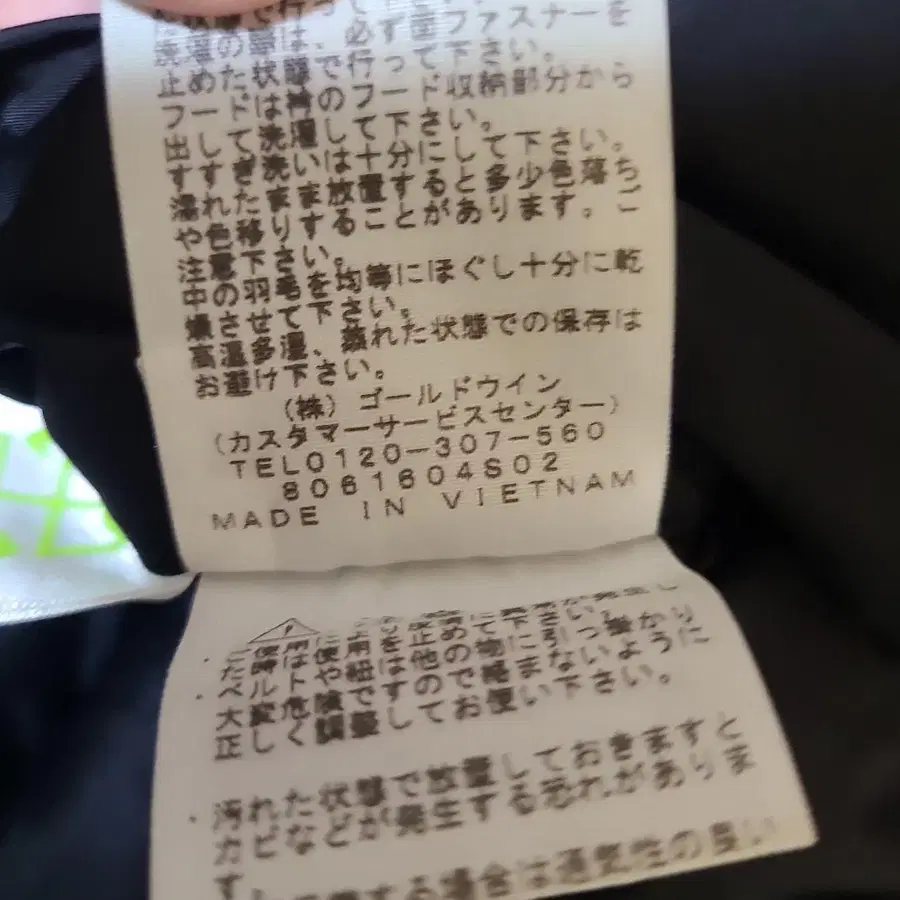 洗濯の際は、必ず面ファスナーを
止めた状態で行って下さい。
フードは衿のフード収納部分から
出して洗濯して下さい。
すすぎ洗いは十分にして下さい。
濡れたまま放置すると多少色落ち
や色移りすることがあります。ご
注意下さい。
中の羽毛を均等にほぐし十分に乾
燥させて下さい。
高温多湿、蒸れた状態での保存は
お避け下さい。
(株) ゴールドウイン
(カスタマーサービスセンター)
TEL0120-307-560
8061604S02
MADE IN VIETNAM
ベルトや紐は他の物に引っ掛かり
大変危険ですので絡まないように
正しく調整してお使い下さい。
汚れた状態で放置しておきますと
カビなどが発生する恐れがありま
す。
する場合は通気性の良い